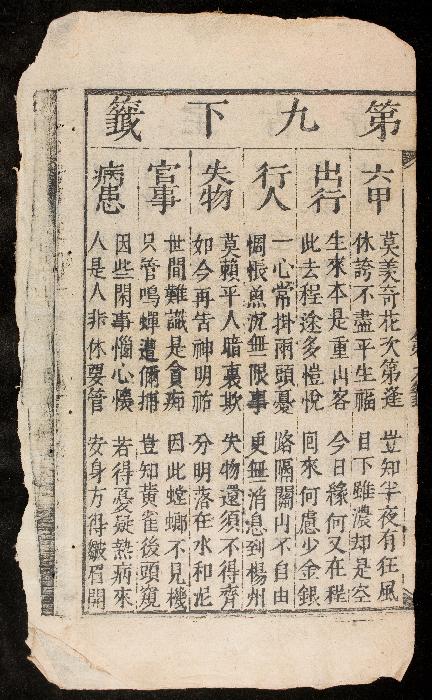 第九下籤
六甲
莫羨奇花次第逢 豈知半夜有狂風
休誇不盡平生福 目下雖濃却是空
出行
生來本是重山客 今日緣何又在程
此去程途多愷悅 囘來何慮少金銀
行人
一心常掛兩頭憂 路隔關山不自由
惆悵魚沉無限事 更無消息到楊州
失物
莫賴平人暗裏欺 失物還須不得齊
如今再告神明祐 分明落在水和泥
官事
世間難識是貪痴 因此螳螂不見機
只管鳴蟬遭儞捕 豈知黄雀後頭窺
病患
因些閑事惱心懐 若得憂疑熱病來
人是人非休要管 安身方得皺眉開